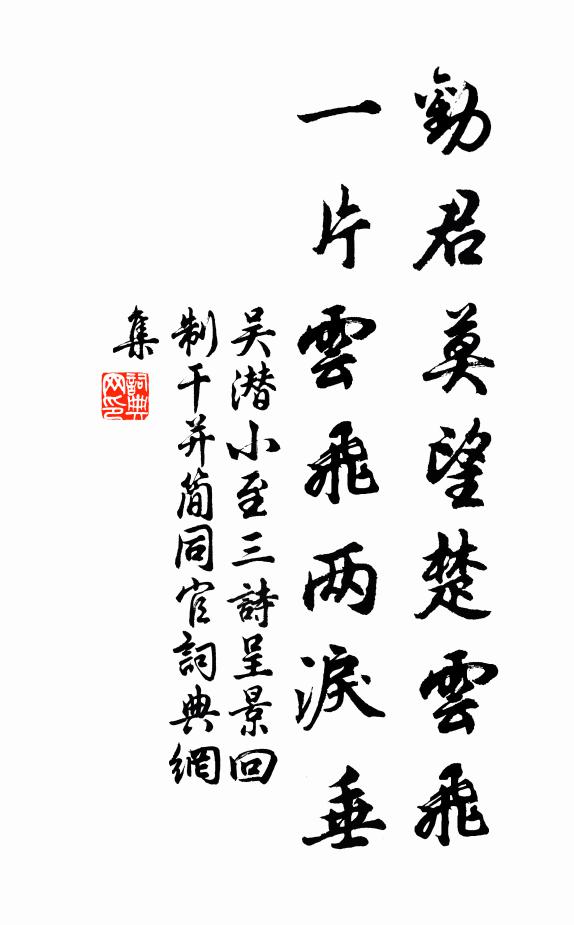 勸君莫望楚雲飛
一片雲飛两淚垂
吴潜小至三詩呈景回
制干并简同官詞典網
集
詞典
网印